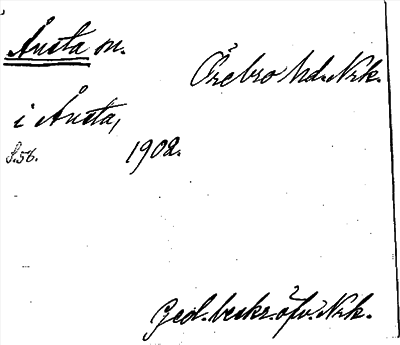 Ånsta sn.
Örebro hd. Nrk.
i Ånsta,
S. 56.
1902.
Geol. beskr. öfv. Nrk.